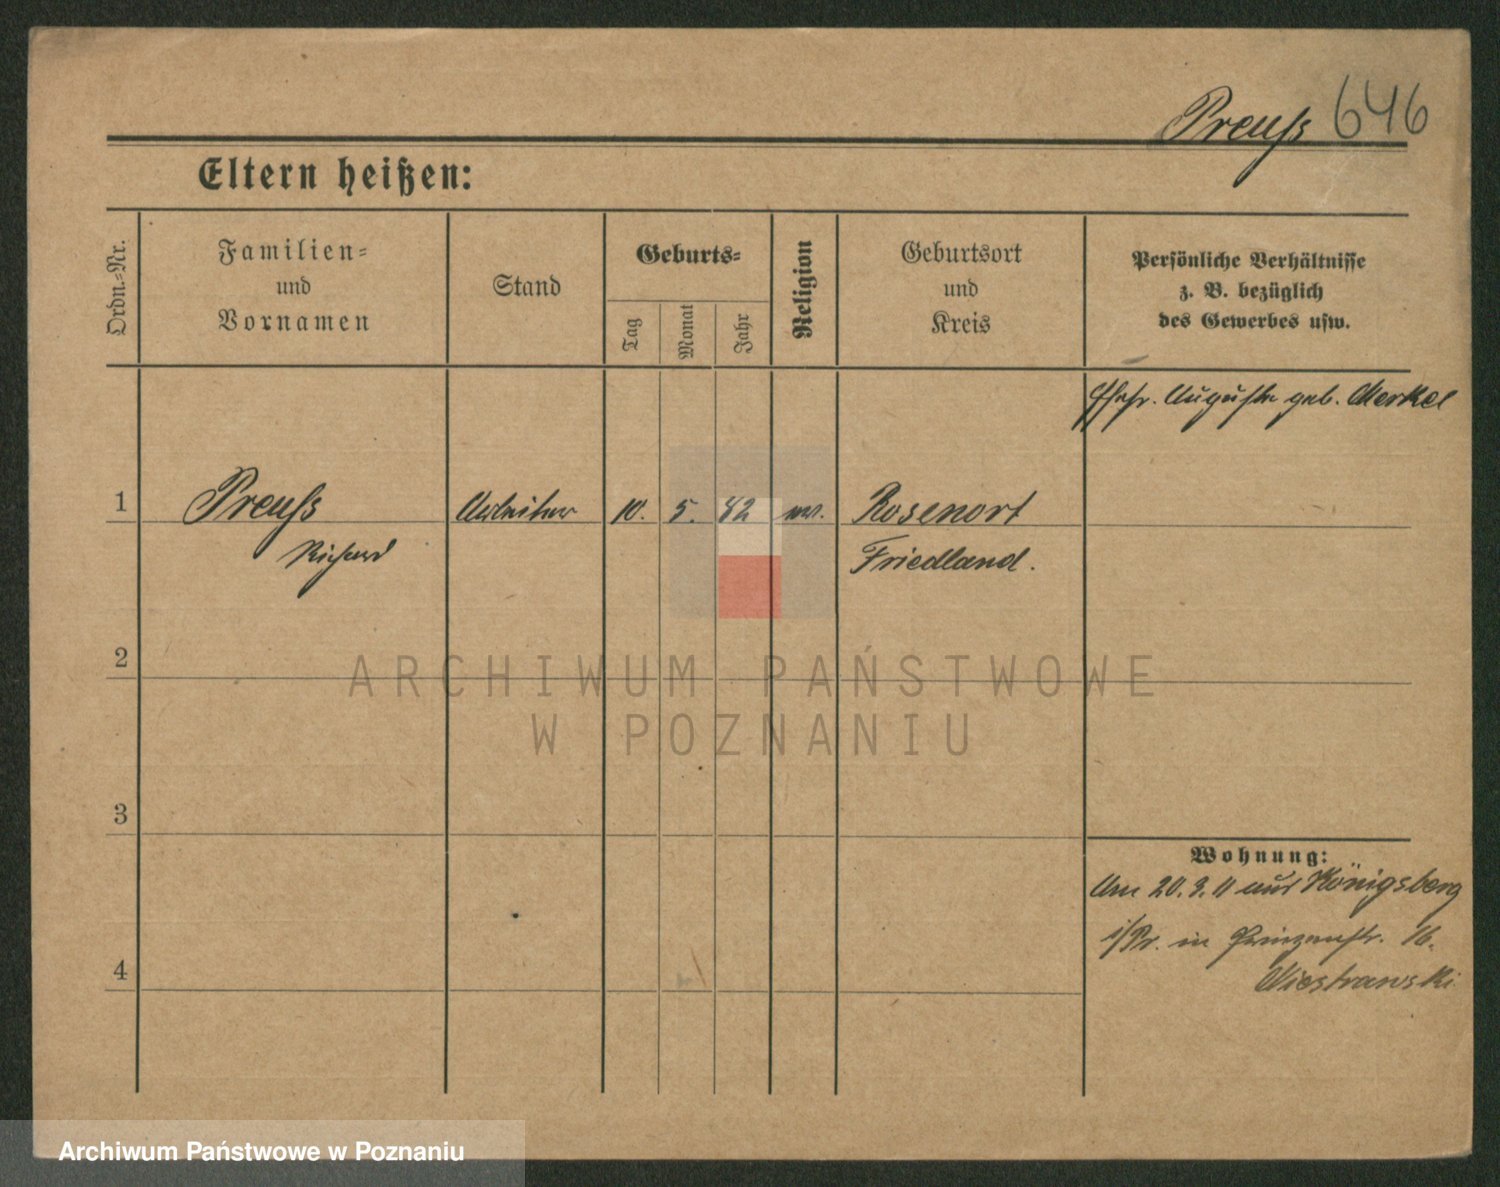 Preuß 646
Eltern heißen:
Ordn.-Nr.
Familien-
und
Vornamen
Stand
Geburts-
Tag
Monat
Jahr
Religion
Geburtsort
und
Kreis
Persönliche Verhältnisse
z. B. bezüglich
des Gewerbes usw.
Ehefr. Auguste geb. Merkel
1 Preuß Arbeiter 10. 5. 82 ev. Rosenort
Richard Friedland.
2
3
4
Wohnung:
Am 20.9.11 aus Königsberg
i/Pr. in Prinzenstr. 16.
ARCHIWUM PAŃSTWOWE
W POZNANIU
Archiwum Państwowe w Poznaniu